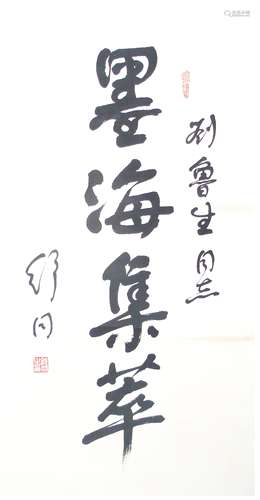 刘鲁生同志
墨海集萃
舒同